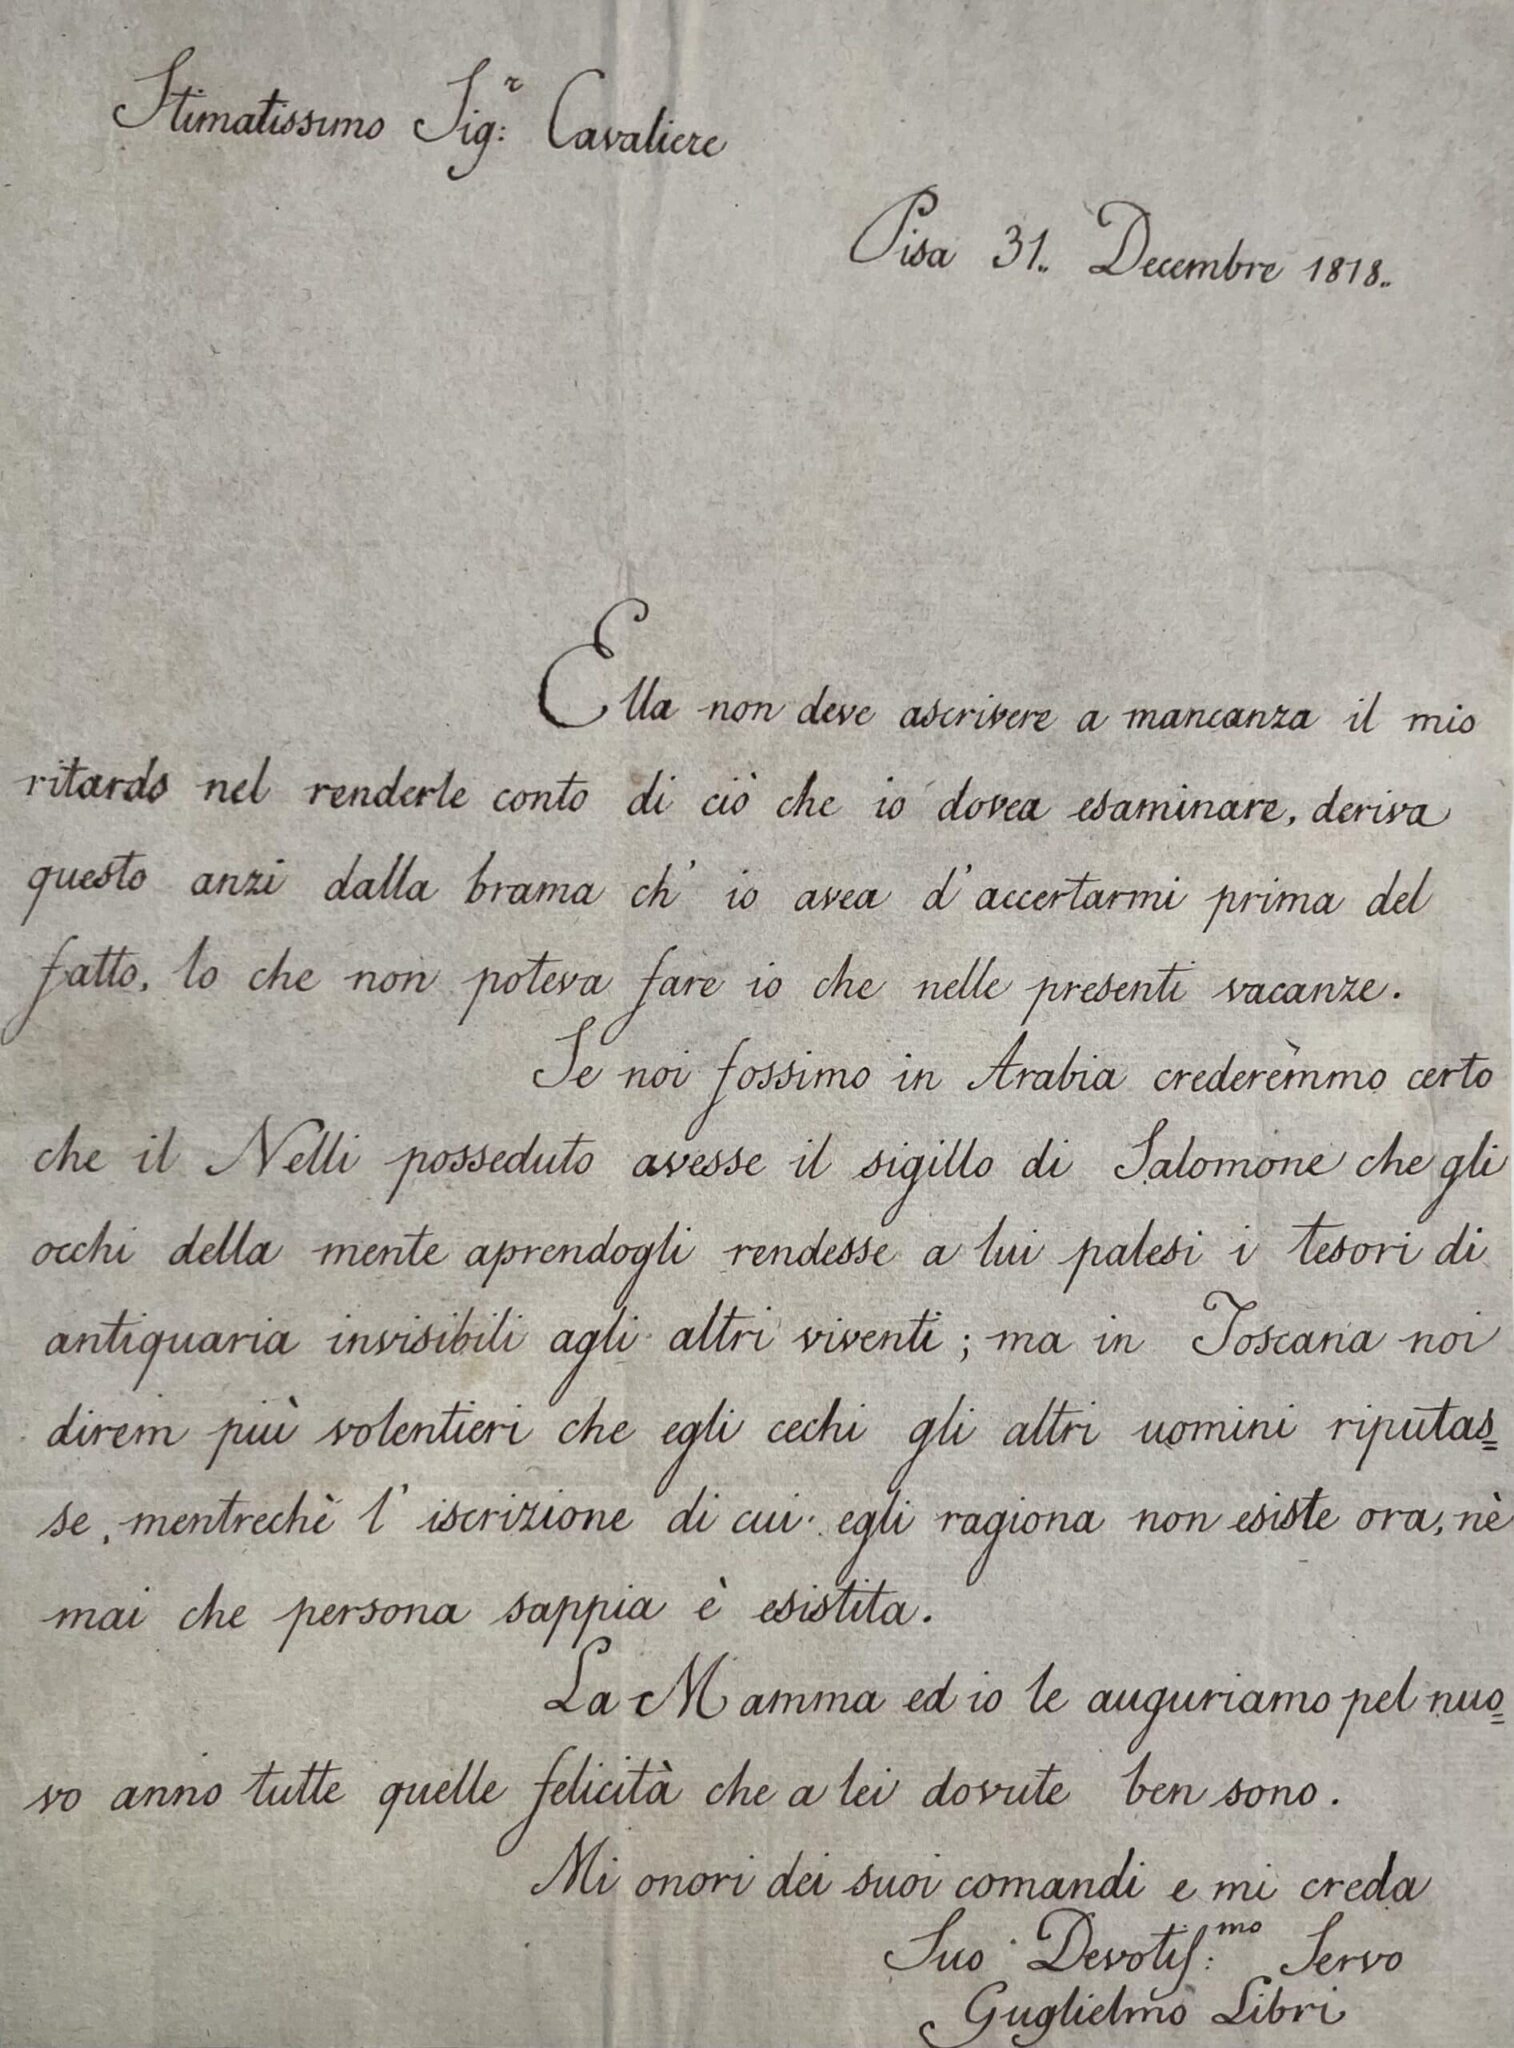 Stimatissimo Sig:r Cavaliere
Pisa 31.. Decembre 1818..
Ella non deve ascrivere a mancanza il mio
ritardo nel renderle conto di ciò che io dovea esaminare, deriva
questo anzi dalla brama ch' io avea d'accertarmi prima del
fatto, lo che non poteva fare io che nelle presenti vacanze.
Se noi fossimo in Arabia crederèmmo certo
che il Nelli posseduto avesse il sigillo di Salomone che gli
occhi della mente aprendogli rendesse a lui palesi i tesori di
antiquaria invisibili agli altri viventi; ma in Toscana noi
direm più volentieri che egli cechi gli altri uomini riputas=
se, mentrechè l' iscrizione di cui egli ragiona non esiste ora, nè
mai che persona sappia è esistita.
La Mamma ed io le auguriamo pel nuo=
vo anno tutte quelle felicità che a lei dovute ben sono.
Mi onori dei suoi comandi e mi creda
Suo Devotis:mo Servo
Guglielmo Libri